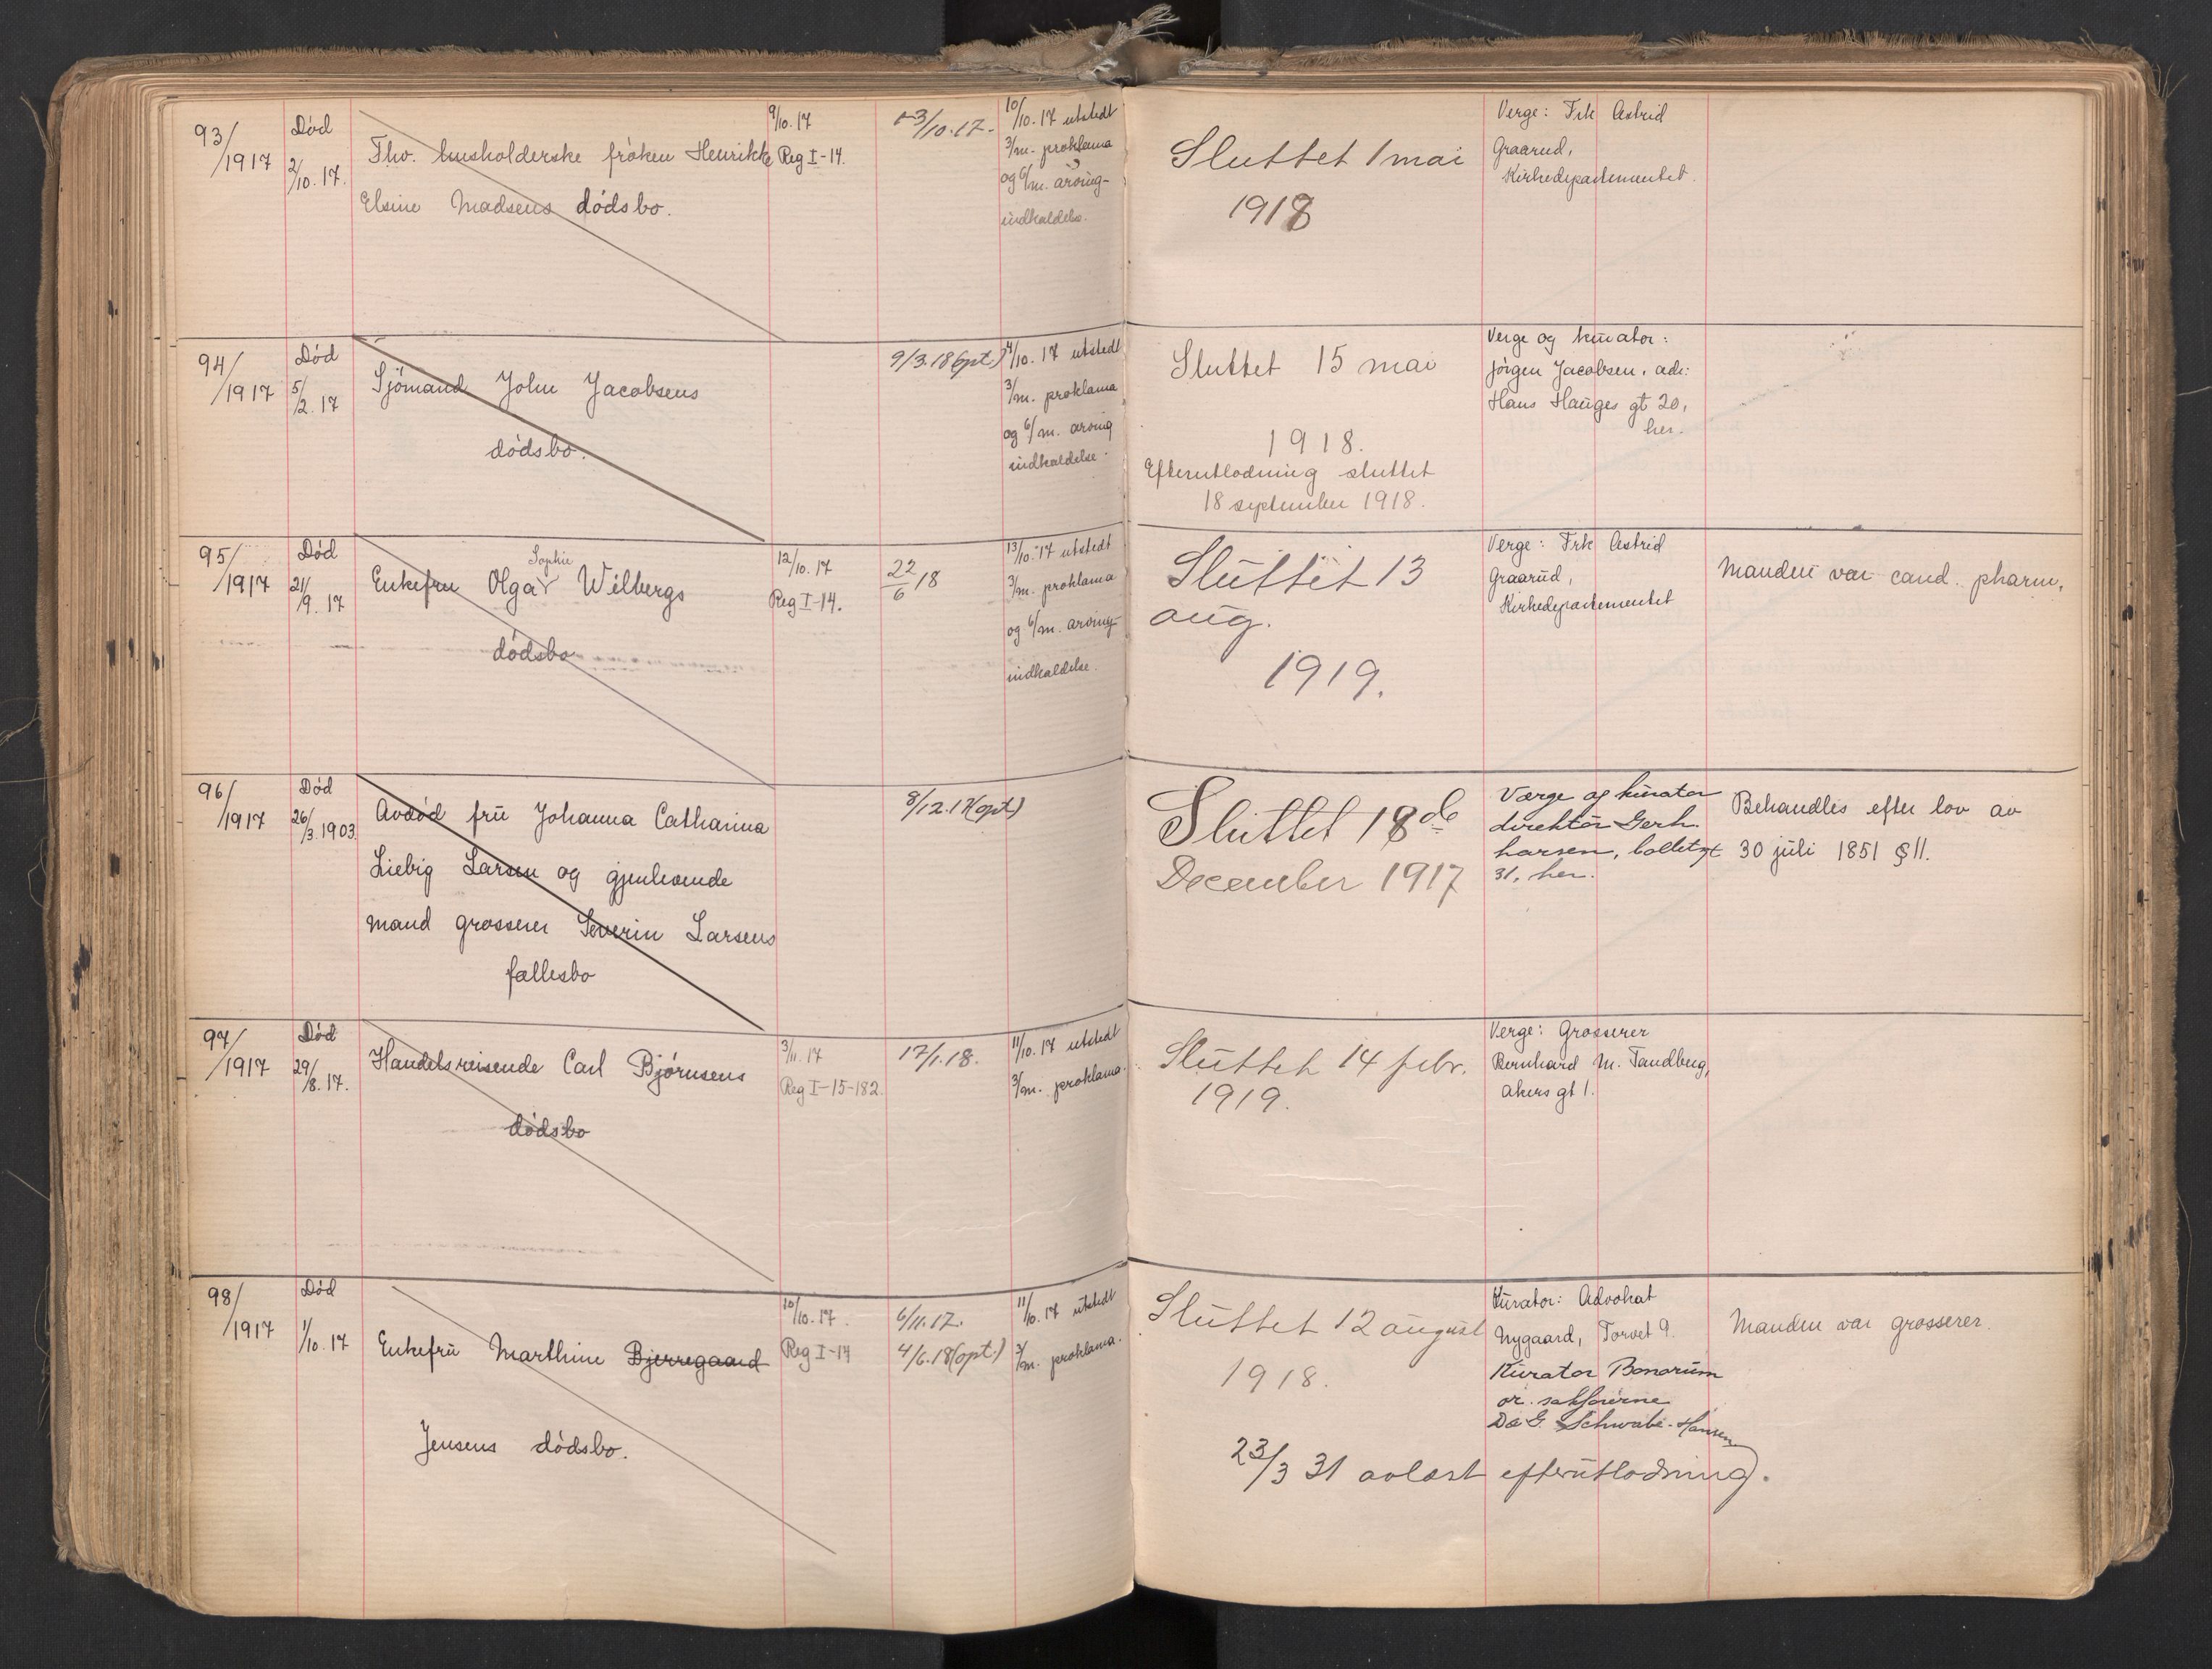 93/1917
Død
2/10. 17.
Fhv. husholderske frøken Henrikke
Elsine Madsens dødsbo.
9/10. 17
Reg I-14.
13/10. 17.
10/10. 17 utstedt
3/m. proklama
og 6/m. arving-
indkaldelse.
Sluttet 1 mai
1918
Verge: Frk Astrid
Graarud,
Kirkedepartementet.
94/1917
Død
5/2. 17
Sjömand John Jacobsens
dødsbo.
9/3. 18 (opt.)
4/10. 17 utstedt
3/m. proklama
og 6/m. arving
indkaldelse.
Sluttet 15 mai
1918.
Efterutlodning sluttet
18 september 1918.
Verge og kurator:
Jørgen Jacobsen, adr:
Hans Hauges gt 20,
her.
95/1917
Død
21/9. 17
Sophie
Enkefru Olga Wilbergs
dødsbo
12/10. 17
Reg I-14.
22/6 18
13/10. 17 utstedt
3/m. proklama
og 6/m. arving-
indkaldelse.
Sluttet 13
aug.
1919.
Verge: Frk Astrid
Graarud,
Kirkedepartementet
Manden var cand. pharm.
96/1917
Død
26/3. 1903.
Avdød fru Johanna Catharina
Liebig Larsen og gjenlevende
mand grosserer Severin Larsens
fællesbo
8/12. 17 (opt)
Sluttet 18de
December 1917
Værge og kurator
direktør Gerh.
Larsen,
31, her.
Behandles efter lov av
30 juli 1851 § 11.
97/1917
Død
29/8. 17.
Handelsreisende Carl Bjørnsens
dødsbo
3/11. 17
Reg I-15-182.
17/1. 18.
11/10. 17 utstedt
3/m. proklama.
Sluttet 14 febr.
1919.
Verge: Grosserer
Bernhard M. Tandberg,
Akersgt 1.
98/1917
Død
1/10. 17
Enkefru Marthine Bjerregaard
Jensens dødsbo.
10/10. 17.
Reg I-14
6/11. 17.
4/6. 18 (opt.)
11/10. 17 utstedt
3/m. proklama.
Sluttet 12 august
1918.
Kurator: Advokat
Nygaard, Torvet 9.
Kurator Bonorum
or. sakførerne
D & G. Schwabe-Hansen
23/3 31 avlæst efterutlodning.
Manden var grosserer.